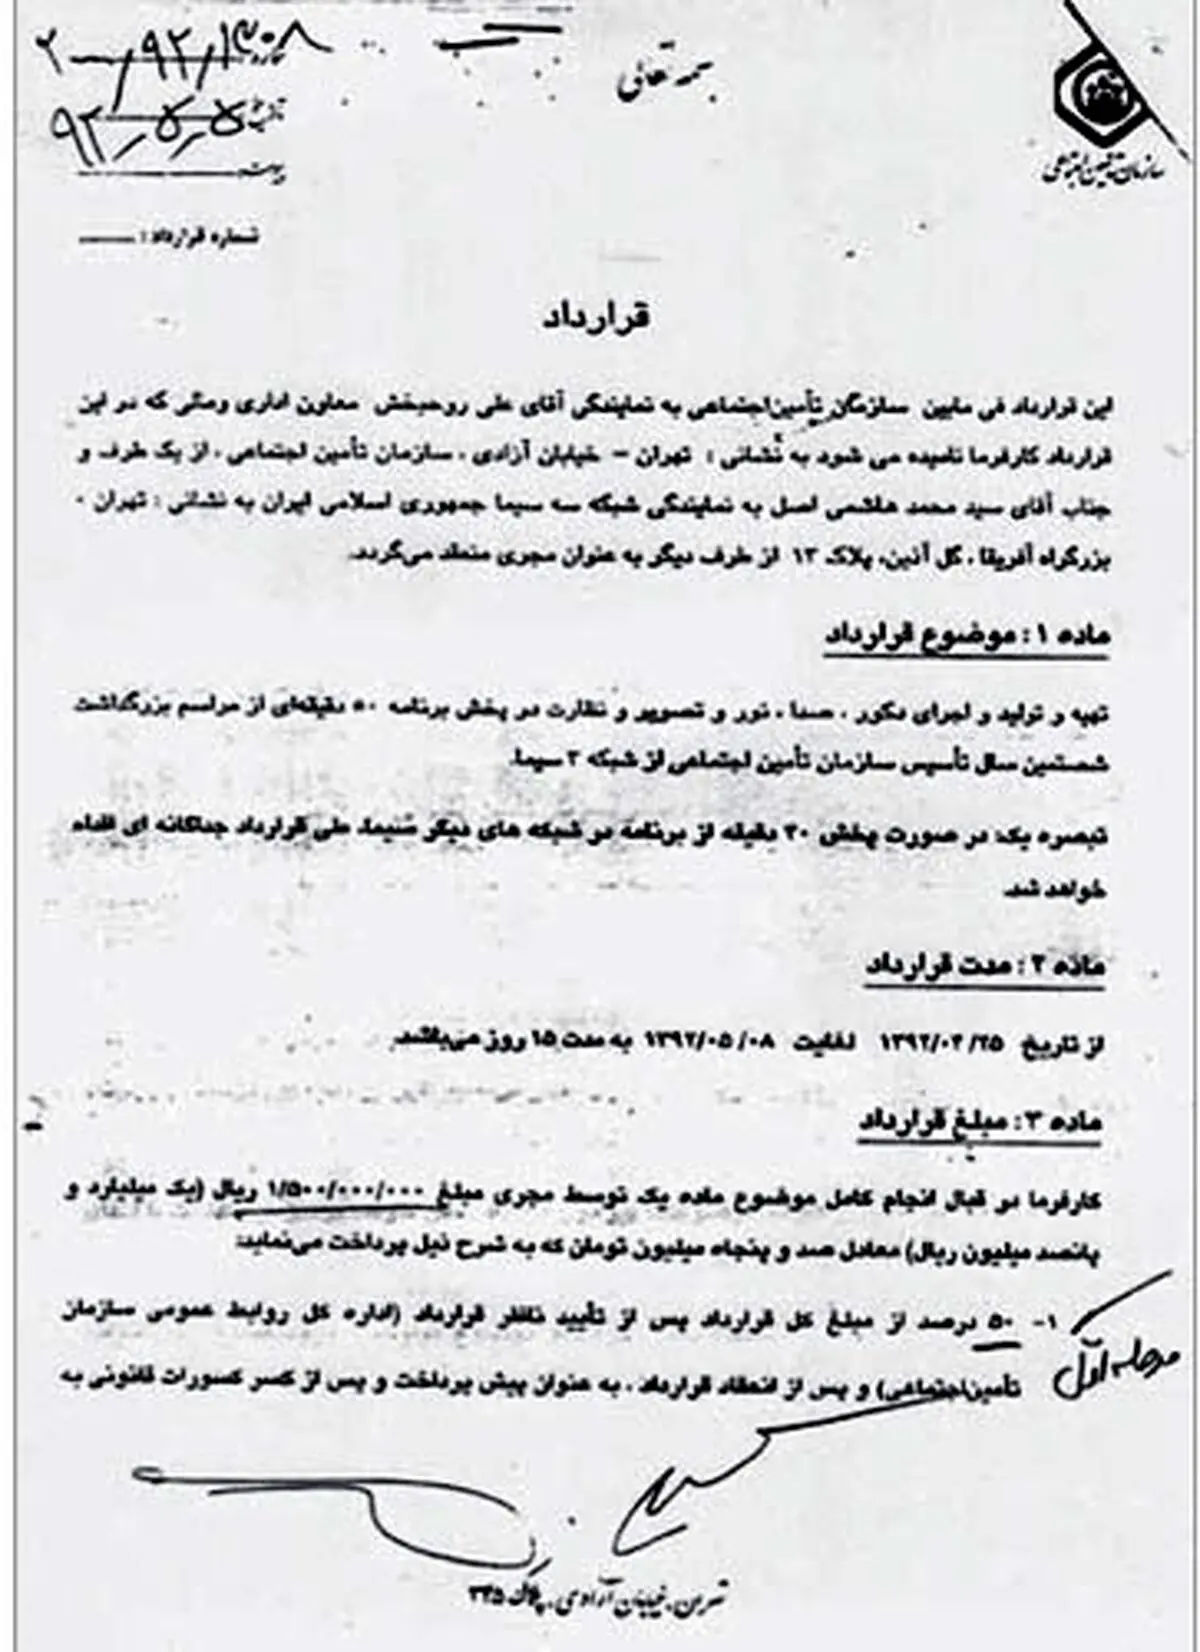 بسمه تعالی
سازمان تأمین اجتماعی
شماره
۲۰۰۰/۹۲/۱۳۰۸
تاریخ
۹۲/۵/۵
پیوست
شماره قرارداد :
قرارداد
این قرارداد فی مابین سازمان تأمین‌اجتماعی به نمایندگی آقای علی روحبخش معاون اداری ومالی که در این
قرارداد کارفرما نامیده می شود به نشانی : تهران – خیابان آزادی ، سازمان تأمین اجتماعی ، از یک طرف و
جناب آقای سید محمد هاشمی اصل به نمایندگی شبکه سه سیما جمهوری اسلامی ایران به نشانی : تهران -
بزرگراه آفریقا ، گل آذین، پلاک ۱۳ از طرف دیگر به عنوان مجری منعقد می‌گردد.
ماده ۱ : موضوع قرارداد
تهیه و تولید و اجرای دکور ، صدا ، نور و تصویر و نظارت در پخش برنامه ۵۰ دقیقه‌ای از مراسم بزرگداشت
شصتمین سال تأسیس سازمان تأمین اجتماعی از شبکه ۳ سیما.
تبصره یک: در صورت پخش ۳۰ دقیقه از برنامه در شبکه های دیگر سیما، طی قرارداد جداگانه ای اقدام
خواهد شد.
ماده ۲ : مدت قرارداد
از تاریخ ۱۳۹۲/۰۴/۲۵ لغایت ۱۳۹۲/۰۵/۰۸ به مدت ۱۵ روز می‌باشد.
ماده ۳ : مبلغ قرارداد
کارفرما در قبال انجام کامل موضوع ماده یک توسط مجری مبلغ ۱/۵۰۰/۰۰۰/۰۰۰ ریال (یک میلیارد و
پانصد میلیون ریال) معادل صد و پنجاه میلیون تومان که به شرح ذیل پرداخت می‌نماید:
۱- ۵۰ درصد از مبلغ کل قرارداد پس از تأیید ناظر قرارداد (اداره کل روابط عمومی سازمان
تأمین‌اجتماعی) و پس از انعقاد قرارداد ، به عنوان پیش پرداخت و پس از کسر کسورات قانونی به
مرحله اول
تهران، خیابان آزادی، پلاک ۳۴۵